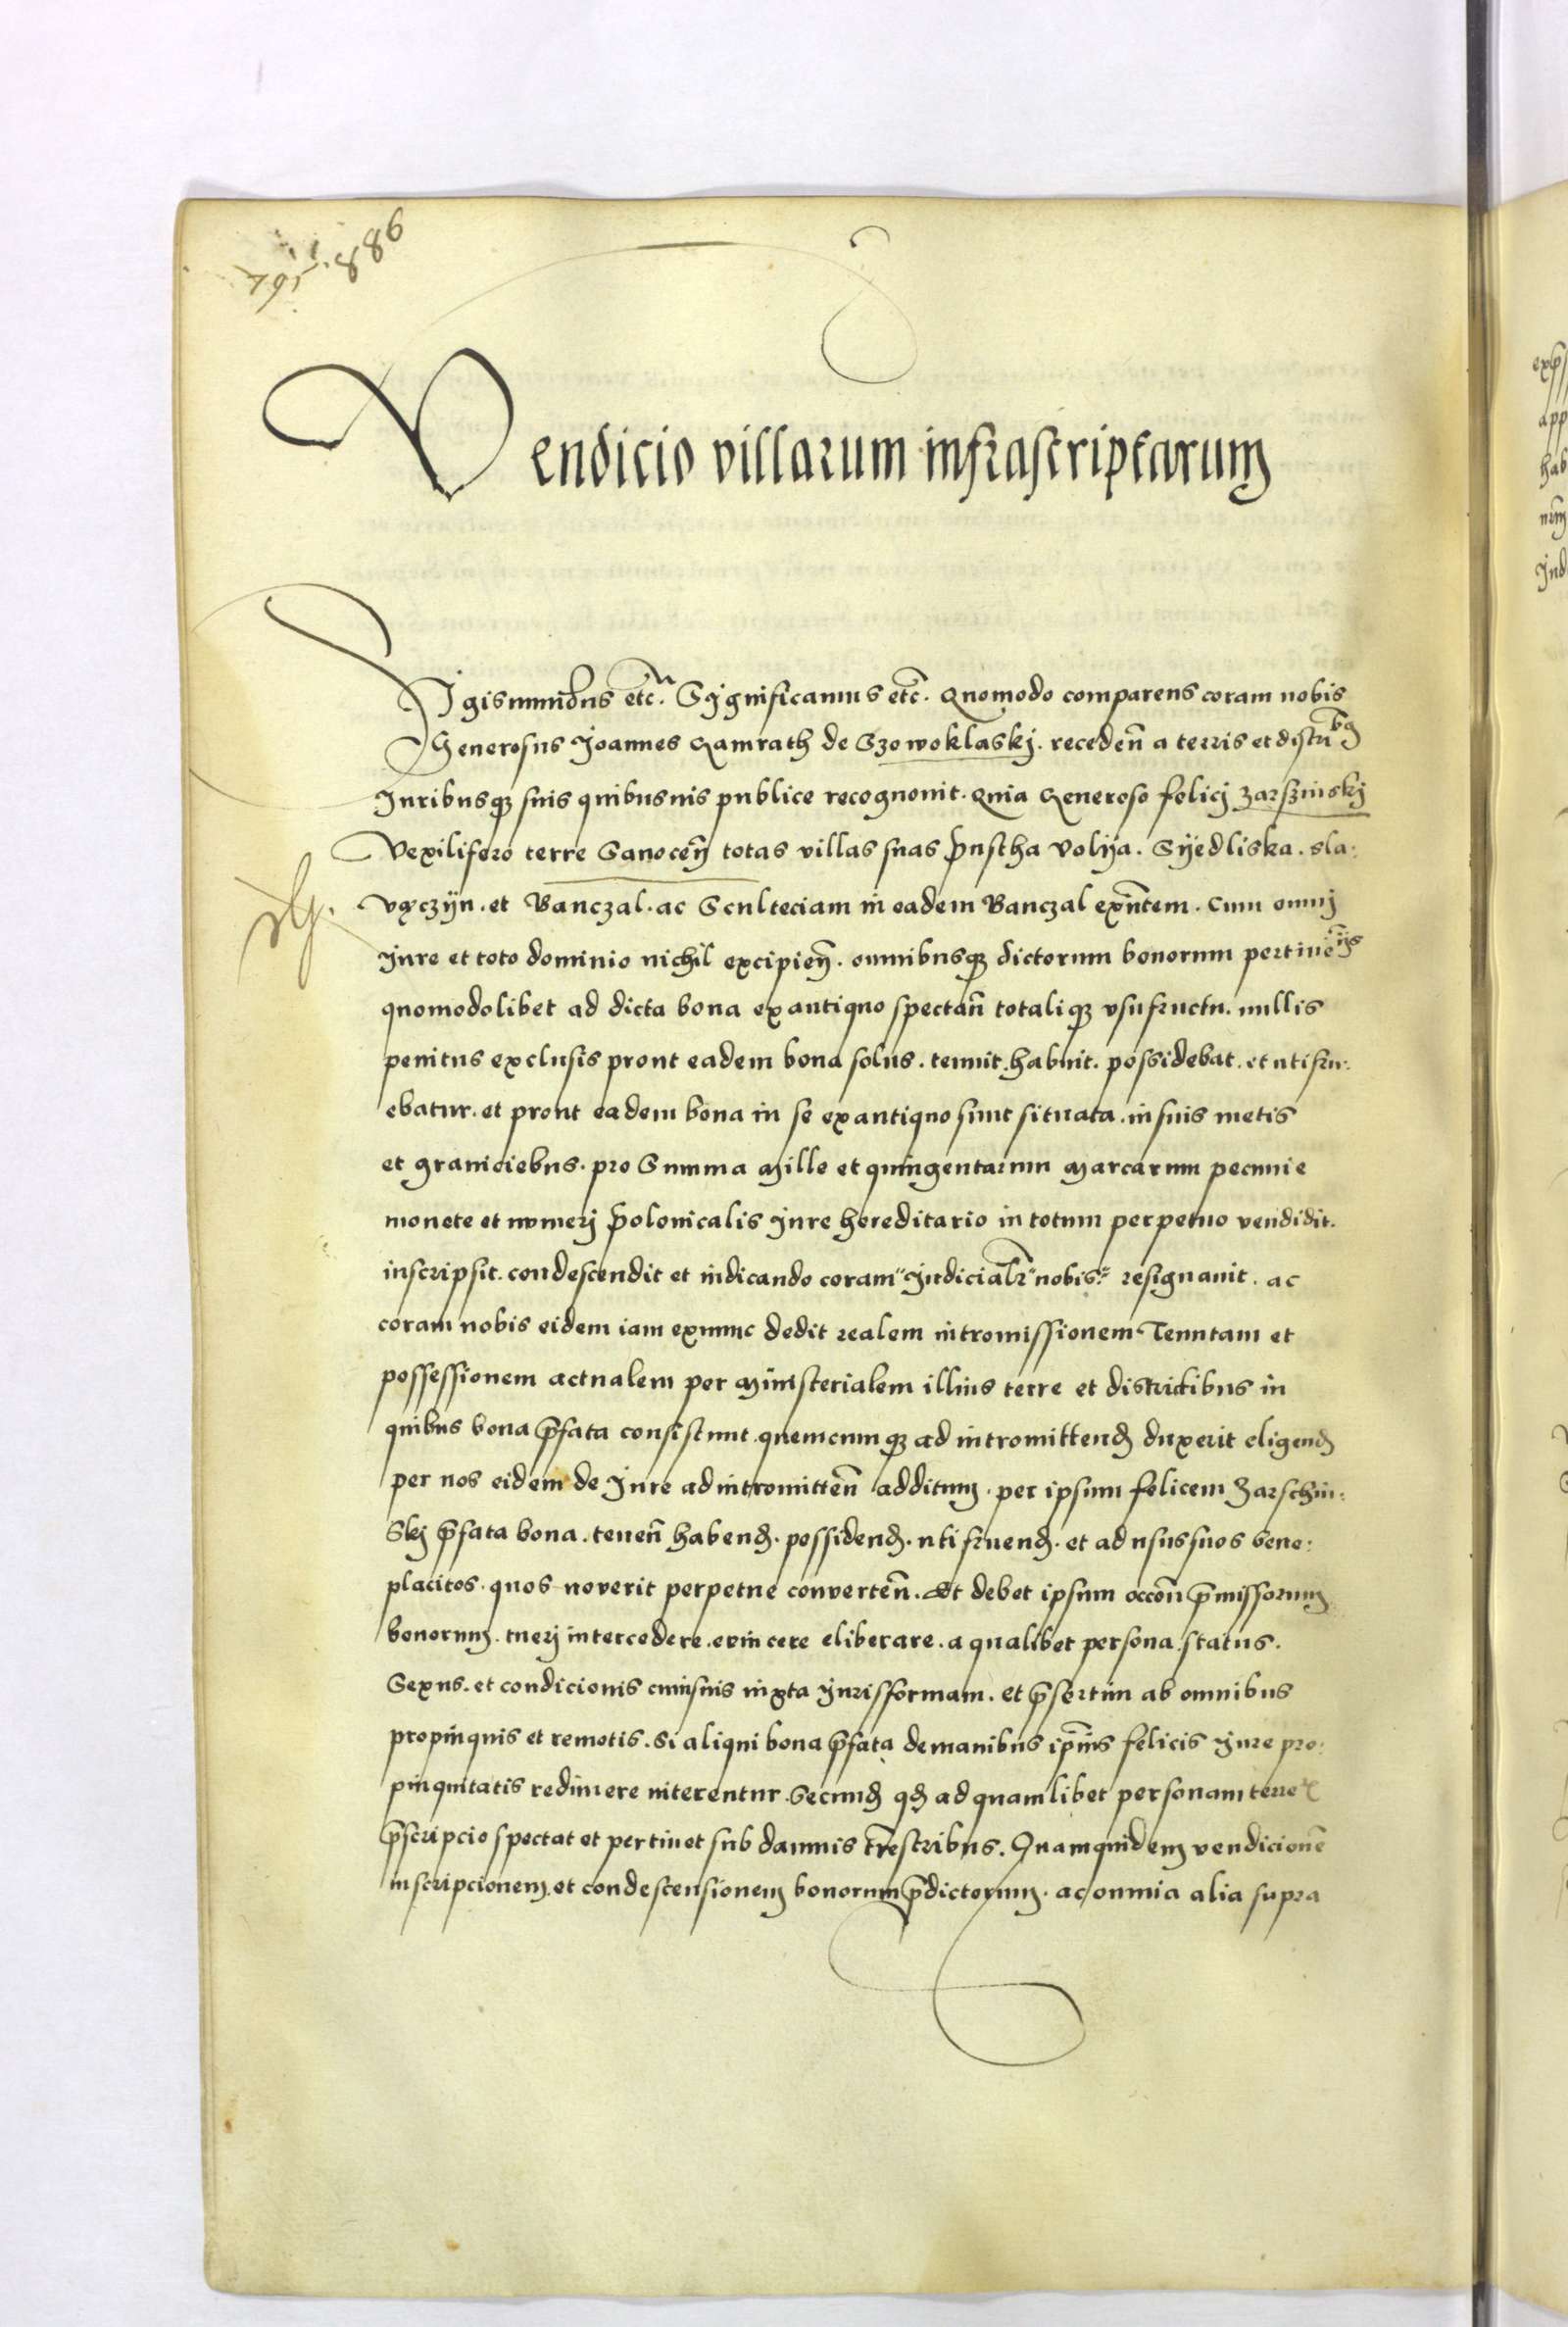 886
Vendicio villarum infrascriptarum
Sigismundus etc. Sygnificamus etc. Quomodo comparens coram nobis
Generosus Joannes Gamrath de Szowoklaskj. receden̄ a terris et distri
Juribusqȝ suis quibusuis publice recognouit. Quia Generoso felicj Zarszinskj
Vexilifero terre Sanoceñ totas villas suas Pustha Volija. Sijedliska. sla:
vączijn. et Banczal. ac Sculteciam in eadem Banczal exn̄tem. Cum omnj
Jure et toto dominio nichil excipieñ. omnibusqȝ dictorum bonorum pertinen̄ijs
quomodolibet ad dicta bona ex antiquo spectan̄ totaliqȝ vsufructu. nullis
penitus exclusis prout eadem bona solus. tenuit. habuit. possidebat. et utifru:
ebatur. et prout eadem bona in se ex antiquo sunt situata. in suis metis
et graniciebus. pro Summa Mille et quingentarum Marcarum pecunie
monete et numerj Polonicalis Jure hereditario in totum perpetuo vendidit.
inscripsit. condescendit et indicando coram "Judicialr̄" nobis" resignauit. ac
coram nobis eidem iam exnunc dedit realem intromissionem Tenutam et
possessionem actualem per Ministerialem illius terre et districtibus in
quibus bona p̄fata consistunt. quemcumqȝ ad intromittend̄ duxerit eligend̄
per nos eidem de Jure ad intromitten̄ additum. per ipsum felicem Zarschin:
Skj p̄fata bona. tenen̄ habend̄. possidend̄. utifruend̄. et ad usus suos bene:
placitos. quos noverit perpetue converten̄. Et debet ipsum occōn p̄missorum
bonorum. tuerj intercedere. evincere eliberare. a qualibet persona. status.
Sexus. et condicionis cuiusuis iuxta Juris formam. et p̄sertim ab omnibus
propinquis et remotis. Si aliqui bona p̄fata de manibus ip̄ius felicis Jure pro:
pinquitatis redimere niterentur. Secund̄ qd̄ ad quamlibet personam terre
p̄scripcio spectat et pertinet sub damnis tr̄estribus. Quamquidem vendicionē
inscripcionem. et condescensionem bonorum p̄dictorum. ac omnia alia supra